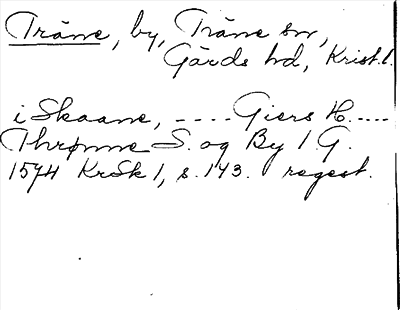 Träne, by, Träne sn,
Gärds hd, Krist.l.
i Skaane, ---- Giers H. ----
Thrønne S. og By 1 G.
1574 KrSk 1, s. 143. regest.